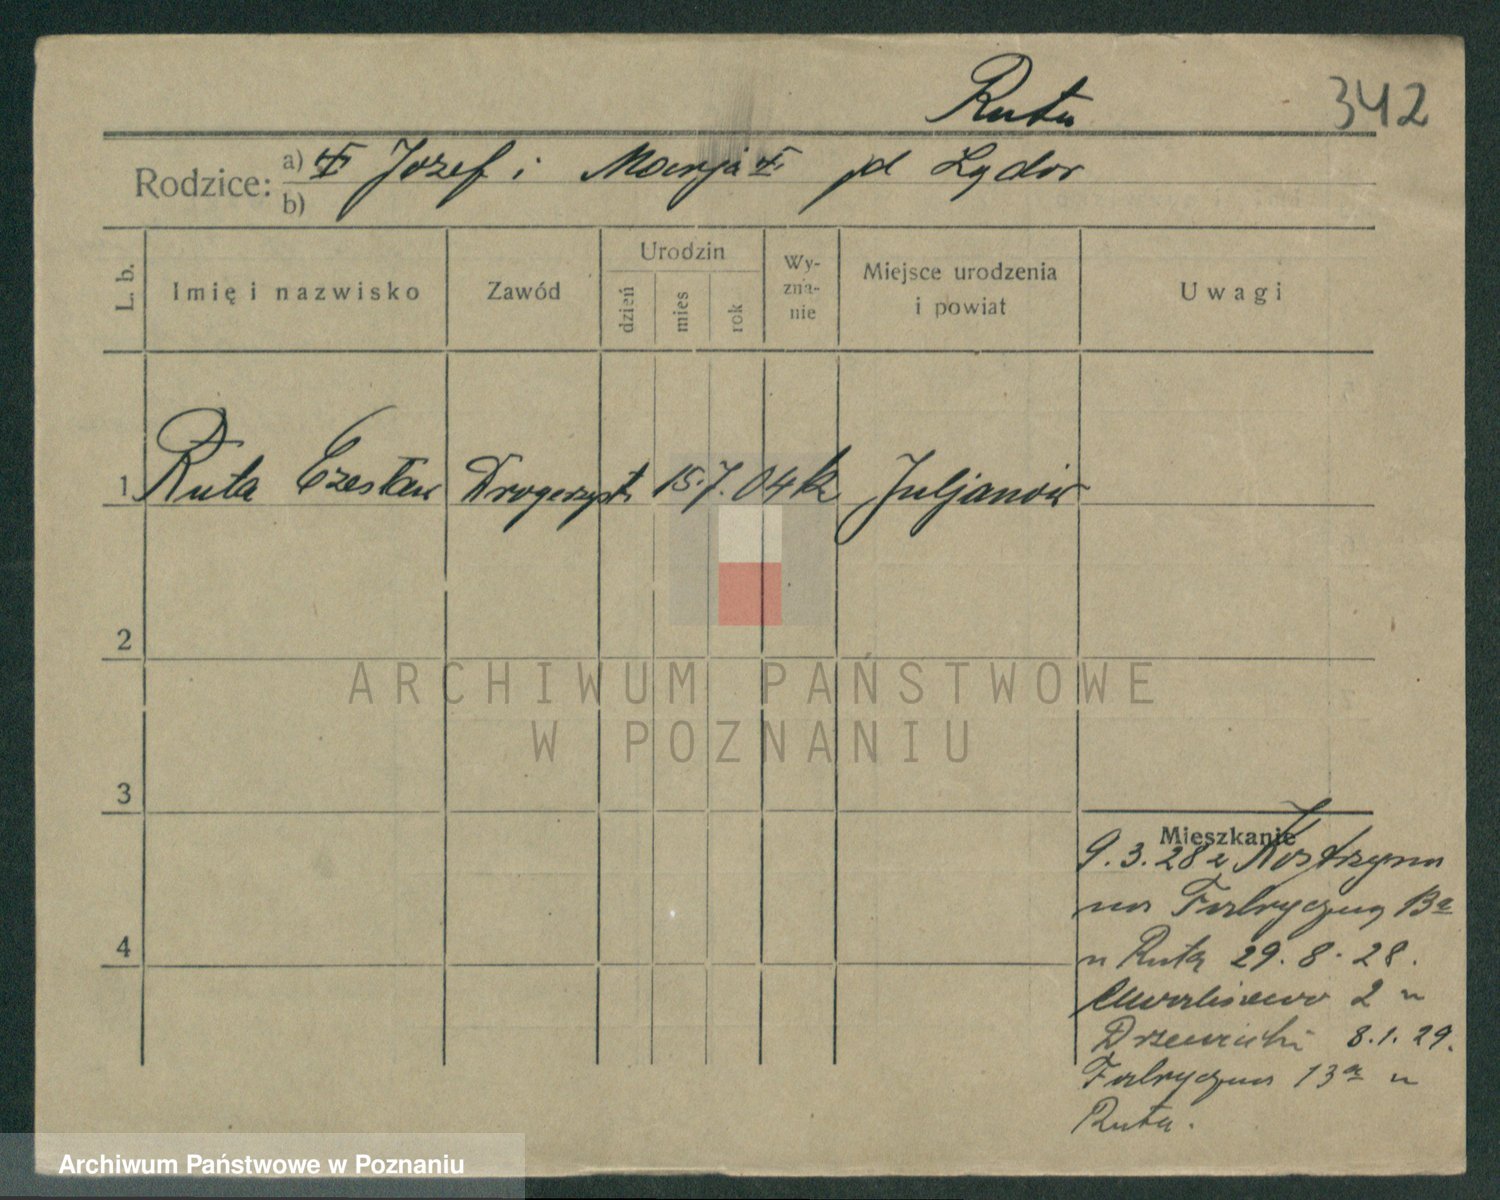 Ruta 342
Rodzice: a) Józef i Marja pd Lgdor
b)
L. b. Imię i nazwisko Zawód Urodzin dzień mies rok Wy-zna-nie Miejsce urodzenia i powiat Uwagi
1 Ruta Czesław Drogerzyst 15.7.04 k Juljanów
2
ARCHIWUM PAŃSTWOWE
W POZNANIU
3
4
Mieszkanie
9.3.28 z Kostrzyna
na Fabryczną 13a
u Ruta 29.8.28.
Chwaliszewo 2 u
Drzewiecki 8.1.29.
Fabryczna 13a u
Ruta.
Archiwum Państwowe w Poznaniu